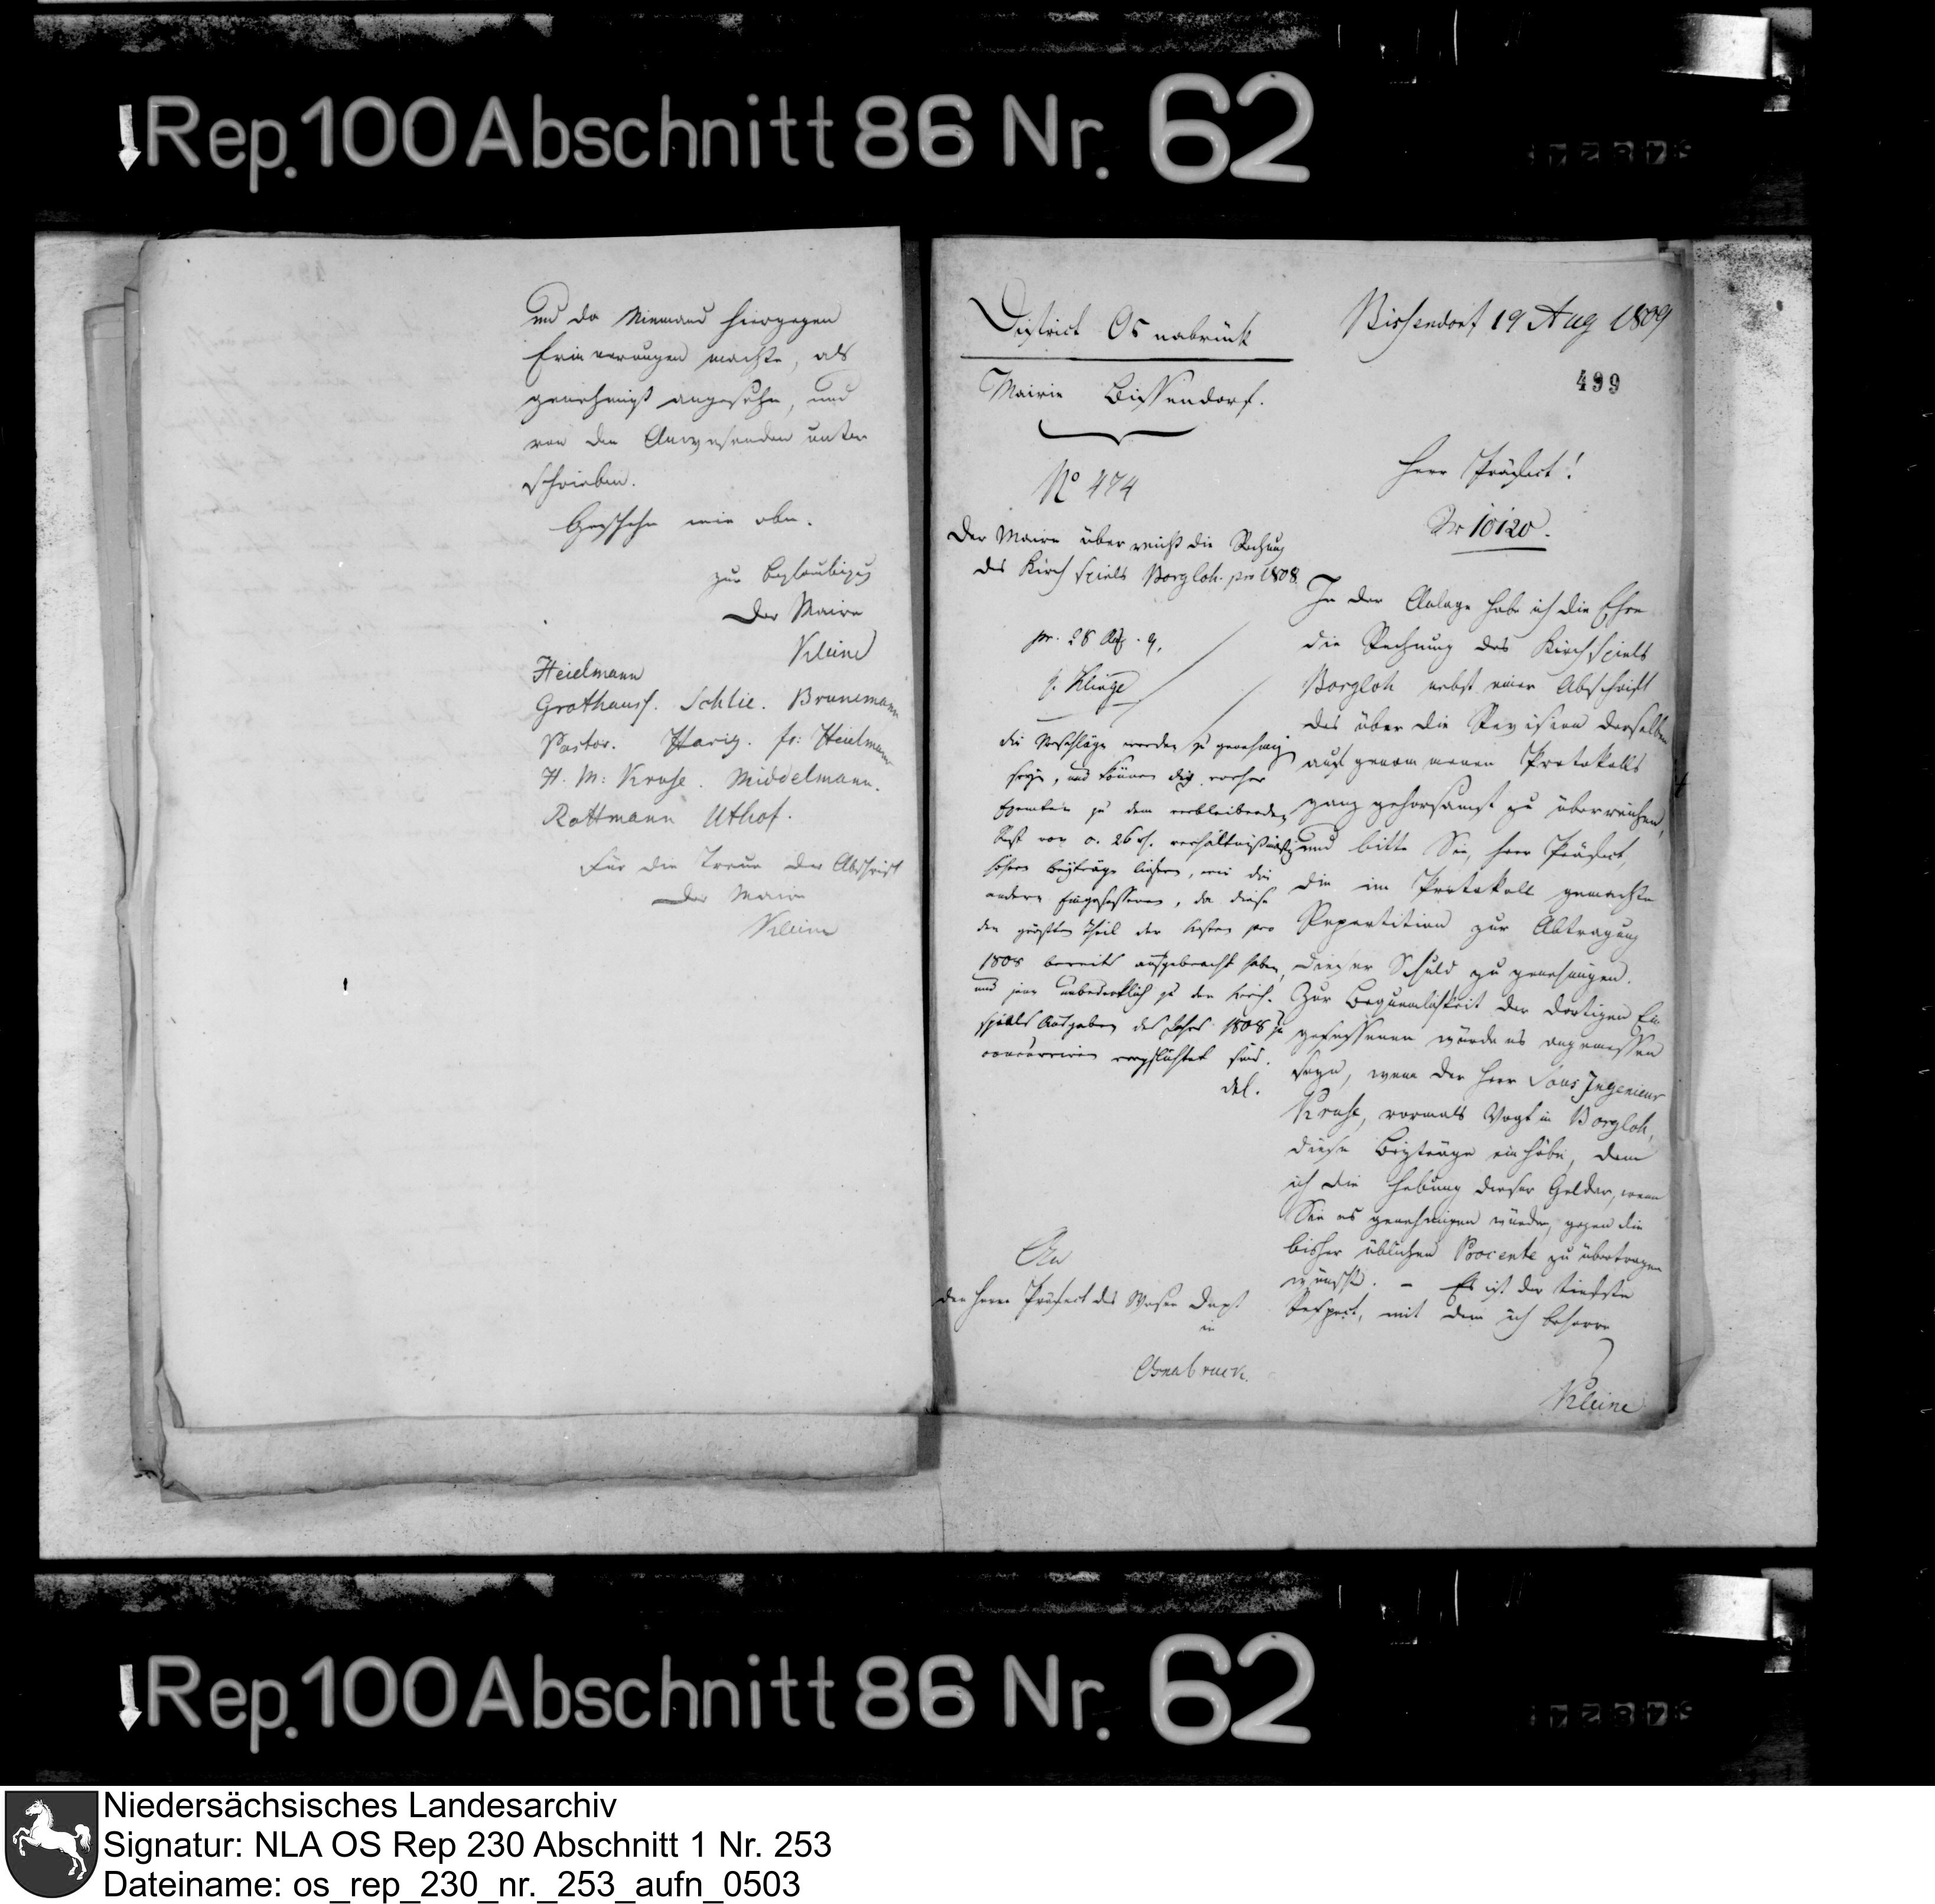 Rep. 100 Abschnitt 86 Nr. 62
und da Niemand hiergegen
Erinnerungen machte, als
genehmigt angesehn, und
von den Anwesenden unter
schrieben.
Geschehn wie oben.
zur Beglaubigung
Der Maire
Kleine
Heielmann
Grothauss. Schlie. Brunemann
Pastor. Harig. fr: Heielmann
H. M: Kruse. Middelmann.
Rottmann Uthof.
Für die Treue der Abschrift
Der Maire
Kleine
District Osnabrück
Mairie Bissendorf.
No 474
Der Maire überreicht die Rechnung
des Kirchspiels Borgloh pro 1808
pr. 28 Aug. 9.
Klinge
die Vorschläge werden zu genehmigen
seyn, und können
zu dem verbleibenden
Rest von 26 verhältnißmäßig
höhere Beyträge liefern, wie die
andern Eingesessenen, da diese
den größten Theil der Kosten pro
1808 bereits aufgebracht haben,
und jene unbedenklich zu den Kirch-
spiels Ausgaben des Jahrs 1808 zu
concurriren verpflichtet sind.
An
den Herrn Präfect des Weser Dept
in
Osnabruck.
Bissendorf 19 Aug 1809
499
Herr Präfect!
Nr 10120.
In der Anlage habe ich die Ehre
die Rechnung des Kirchspiels
Borgloh nebst einer Abschrift
des über die Revision derselben
aufgenommenen Protokolls
ganz gehorsamst zu überreichen,
und bitte Sie, Herr Präfect,
die im Protokoll gemachte
Repartition zur Abtragung
dieser Schuld zu genehmigen.
Zur Bequemlichkeit der dortigen Ein
gesessenen würde es angemessen
seyn, wenn der Herr Sous Ingenieur
Kruse, vormals Vogt in Borgloh,
diese Beyträge einhöbe, dem
ich die Hebung dieser Gelder, wenn
Sie es genehmigen würden, gegen die
bisher üblichen Procente zu übertragen
wünsche. – Es ist der tiefste
Respect, mit dem ich beharre
Kleine
Rep. 100 Abschnitt 86 Nr. 62
Niedersächsisches Landesarchiv
Signatur: NLA OS Rep 230 Abschnitt 1 Nr. 253
Dateiname: os_rep_230_nr._253_aufn_0503